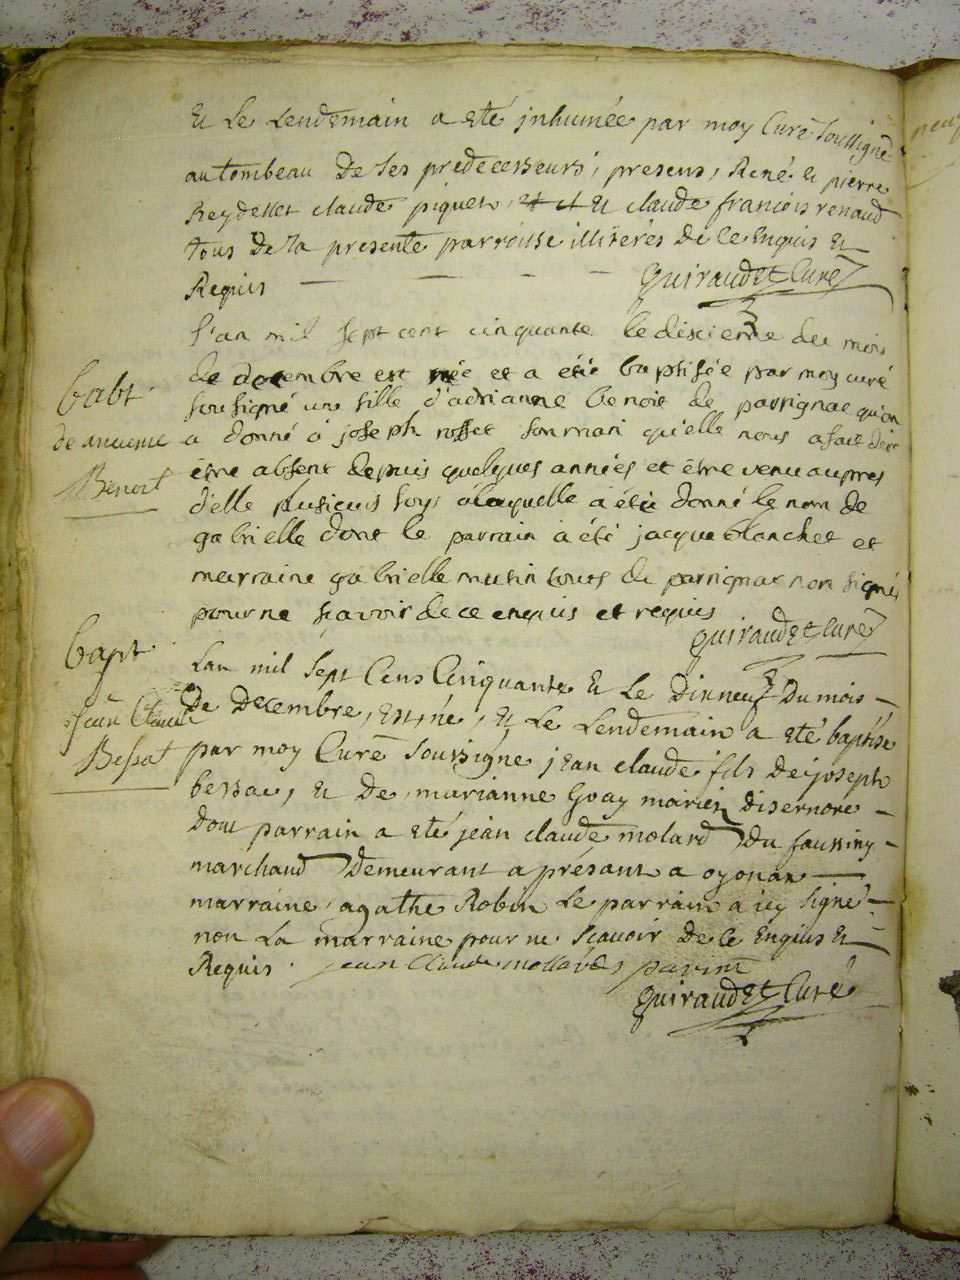 Et Le Lendemain a eté jnhumée par moy Curé soussigné
au tombeau de ses predecesseurs, presens, René et pierre
Reydellet claude piquet, et claude francois renaud
tous de la presente parroisse illiterés de ce Enquis et
Requis Guiraudet Curé
L'an mil sept cent cinquante le dixieme du mois
de decembre est née et a été baptisée par moy curé
sousigné une fille d'adrianne benoit de parrignac qu'on
a donné à joseph rosset son mari qu'elle nous a fait dire
être absent depuis quelques années et être venu aupres
d'elle plusieurs foys a laquelle a été donné le nom de
gabrielle dont le parrain à été jacque blanchet et
marraine gabrielle mutin touts de parrignac non signés
pour ne scavoir de ce enquis et requis
Guiraudet Curé
babt.
Benoit
Lan mil sept Cens Cinquante Et Le dixneuf Du mois
De Decembre, Est né, Et Le Lendemain a eté baptisé
par moy Curé soussigné jean claude fils de joseph
bessac, et de marianne Goay disernore
dont parrain a eté jean claude molard du faussiny
marchand Demeurant a présant a oyonax
marraine agathe Robin Le parrain a icy signé
non La marraine pour ne scavoir de ce Enquis Et
Requis. jean Claude mollard parint
Guiraudet Curé
bapt.
jean Claude
Bessat